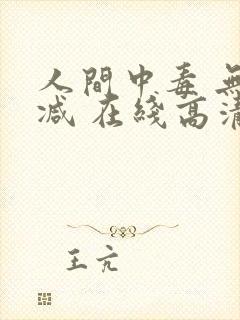 人間中毒 無
减 在綫高清
王亢